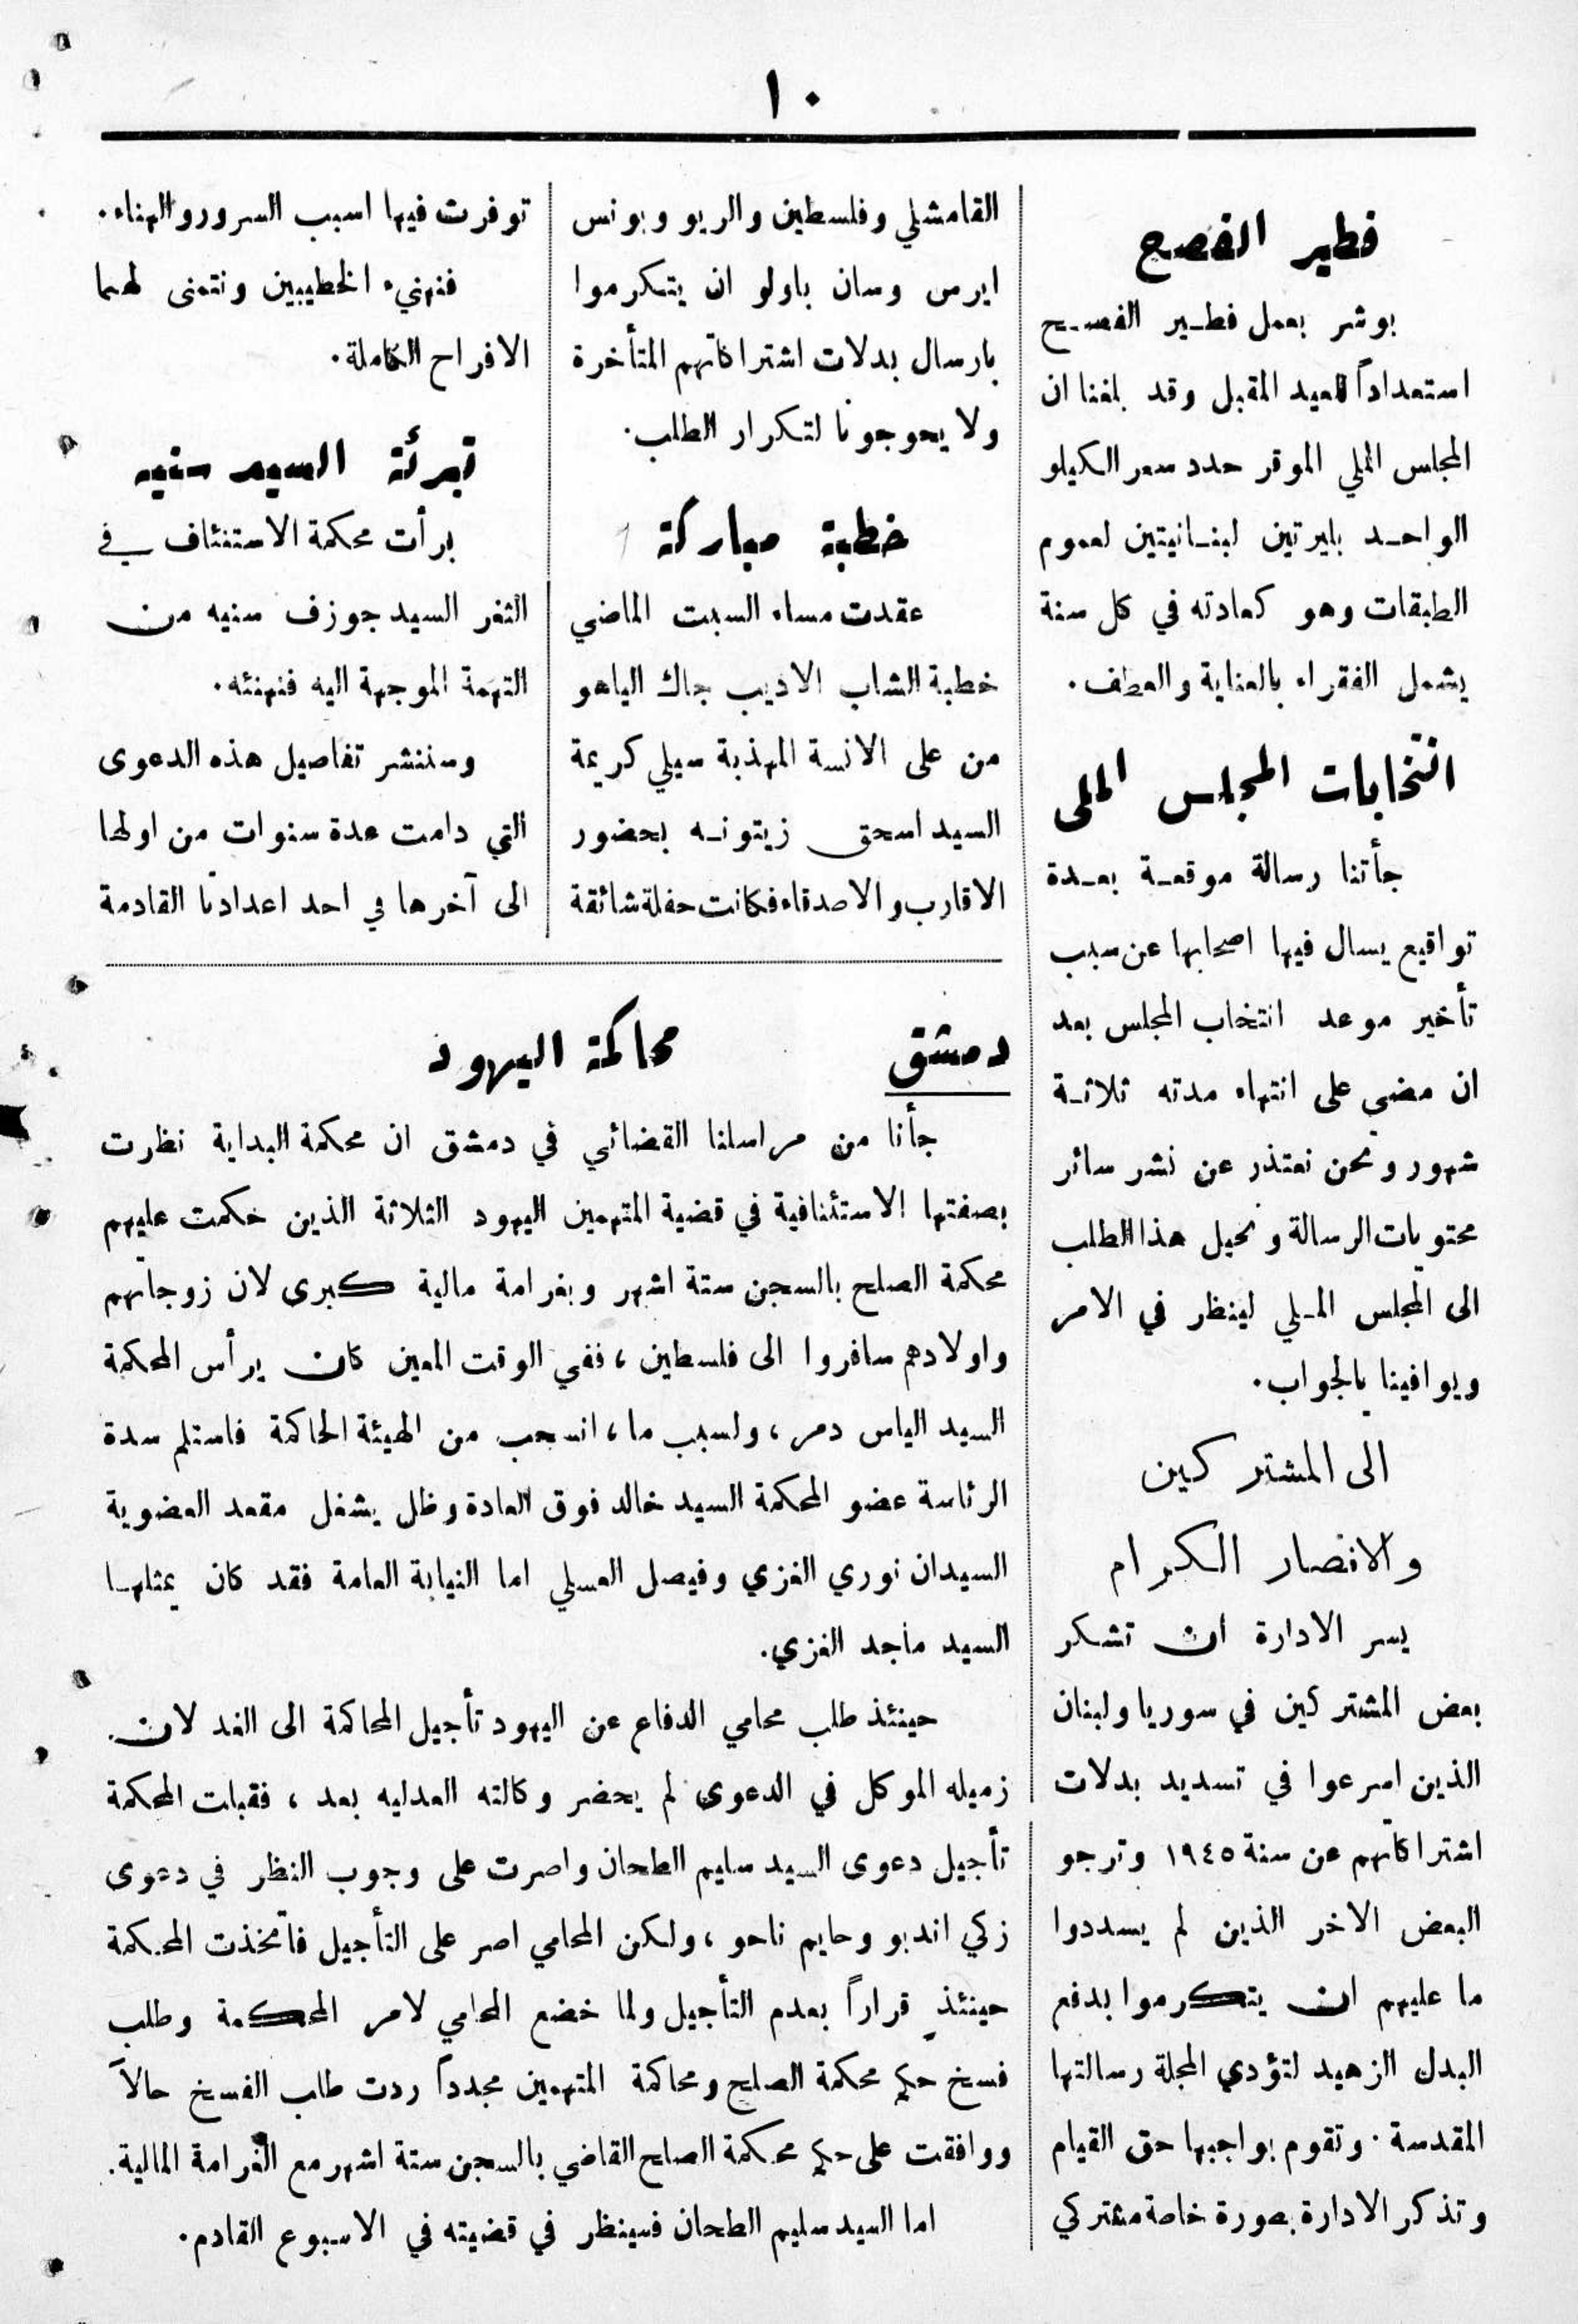 ١٠
فطير الفصح
بوشر بعمل فطير الفصح
استعداداً للعيد المقبل وقد بلغنا ان
المجلس الملي الموقر حدد سعر الكيلو
الواحد بليرتين لبنانيتين لعموم
الطبقات وهو كعادته في كل سنة
يشمل الفقراء بالعناية والعطف.
انتخابات المجلس الملي
جأتنا رسالة موقعة بعدة
تواقيع يسال فيها اصحابها عن سبب
تأخير موعد انتخاب المجلس بعد
ان مضي على انتهاء مدته ثلاثة
شهور ونحن نعتذر عن نشر سائر
محتويات الرسالة ونحيل هذا الطلب
الى المجلس الملي لينظر في الامر
ويوافينا بالجواب.
الى المشتركين
والانصار الكرام
يسر الادارة ان تشكر
بعض المشتركين في سوريا ولبنان
الذين اسرعوا في تسديد بدلات
اشتراكاتهم عن سنة ١٩٤٥ وترجو
البعض الاخر الذين لم يسددوا
ما عليهم ان يتكرموا بدفع
البدل الزهيد لتؤدي المجلة رسالتها
المقدسة. وتقوم بواجبها حق القيام
وتذكر الادارة بصورة خاصة مشتركي
القامشلي وفلسطين والريو وبونس
ايرس وسان باولو ان يتكرموا
بارسال بدلات اشتراكاتهم المتأخرة
ولا يحوجونا لتكرار الطلب.
خطبة مباركة
عقدت مساء السبت الماضي
خطبة الشاب الاديب جاك الياهو
من على الانسة المهذبة سيلي كريمة
السيد اسحق زيتونه بحضور
الاقارب والاصدقاء فكانت حفلة شائقة
توفرت فيها اسبب السرور والهناء.
فنهنيء الخطيبين ونتمنى لهما
الافراح الكاملة.
تبرئة السيد سنيه
برأت محكمة الاستنئاف في
الثغر السيد جوزف سنيه من
التهمة الموجهة اليه فنهنئه.
وسننشر تفاصيل هذه الدعوى
التي دامت عدة سنوات من اولها
الى آخرها في احد اعدادنا القادمة
دمشق محاكمة اليهود
جأنا من مراسلنا القضائي في دمشق ان محكمة البداية نظرت
بصفتها الاستئنافية في قضية المتهمين اليهود الثلاثة الذين حكمت عليهم
محكمة الصلح بالسجن ستة اشهر وبغرامة مالية كبرى لان زوجاتهم
واولادهم سافروا الى فلسطين، ففي الوقت المعين كان يرأس المحكمة
السيد الياس دمر، ولسبب ما، انسحب من الهيئة الحاكمة فاستلم سدة
الرئاسة عضو المحكمة السيد خالد فوق العادة وظل يشغل مقعد العضوية
السيدان نوري الغزي وفيصل العسلي اما النيابة العامة فقد كان يمثلها
السيد ماجد الغزي.
حينئذ طلب محامي الدفاع عن اليهود تأجيل المحاكمة الى الغد لان
زميله الموكل في الدعوى لم يحضر وكالته العدليه بعد، فقبلت المحكمة
تأجيل دعوى السيد سليم الطحان واصرت على وجوب النظر في دعوى
زكي اندبو وحايم ناحو، ولكن المحامي اصر على التأجيل فاتخذت المحكمة
حينئذٍ قراراً بعدم التأجيل ولما خضع المحامي لامر المحكمة وطلب
فسخ حكم محكمة الصلح ومحاكمة المتهمين مجدداً ردت طلب الفسخ حالاً
ووافقت على حكم محكمة الصلح القاضي بالسجن ستة اشهر مع الغرامة المالية.
اما السيد سليم الطحان فسينظر في قضيته في الاسبوع القادم.